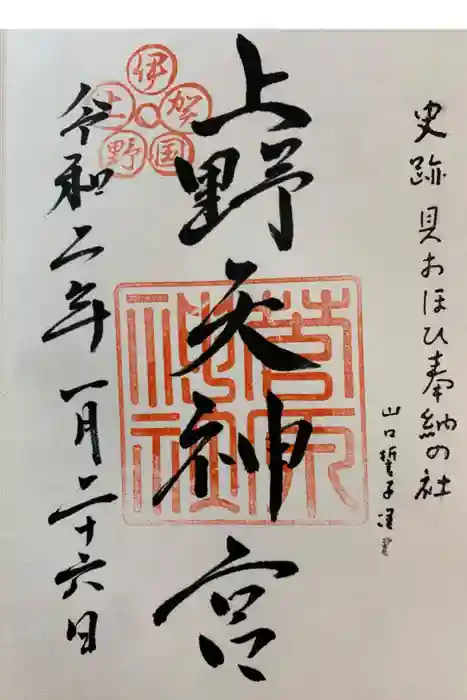 史跡 貝おほひ奉納の社
山口誓子
上野天神宮
菅原
神社
伊賀国上野
令和二年一月二十六日